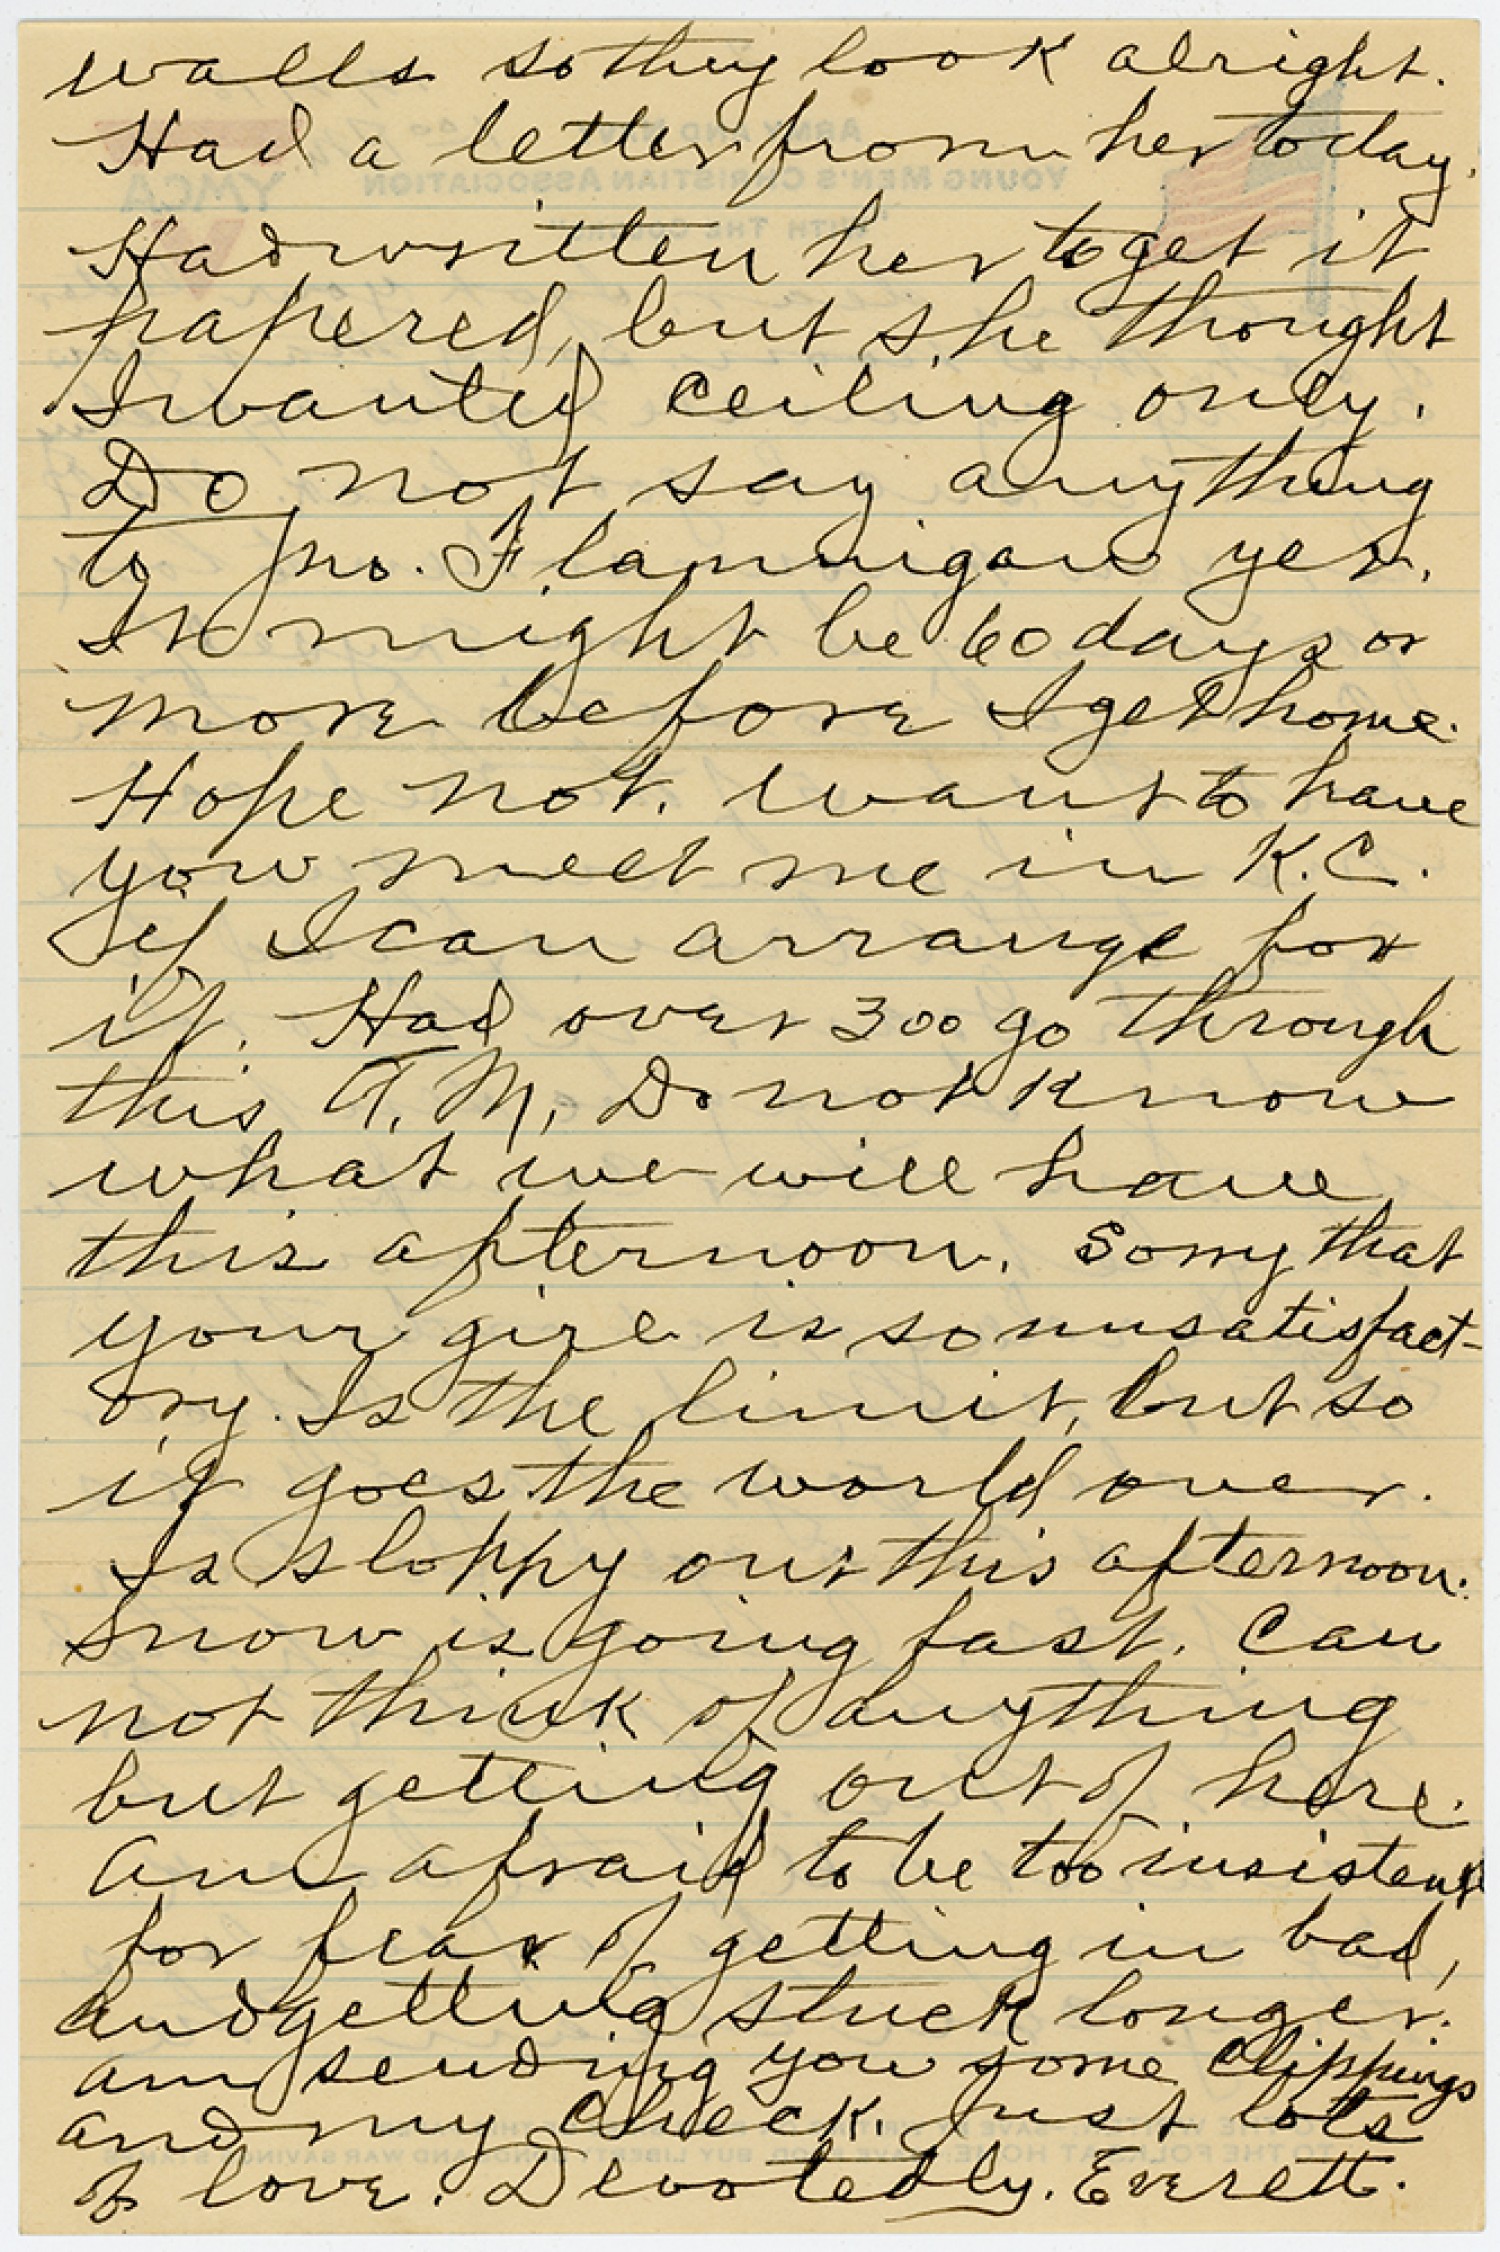 walls so they look alright.
Had a letter from her today.
Had written her to get it
papered, but she thought
I wanted ceiling only.
Do not say anything
to Jno. Flannigan yet.
It might be 60 days or
more before I get home.
Hope not. Want to have
you meet me in K.C.
if I can arrange for
it. Had over 300 go through
this A.M. Do not know
what we will have
this afternoon. Sorry that
your girl is so unsatisfact-
ory. Is the limit, but so
it goes the world over.
Is sloppy out this afternoon.
Snow is going fast. Can
not think of anything
but getting out of here.
Am afraid to be too insistent
for fear of getting in bad,
and getting stuck longer.
am sending you some clippings
and my check. Just lots
of love. Devotedly. Everett.